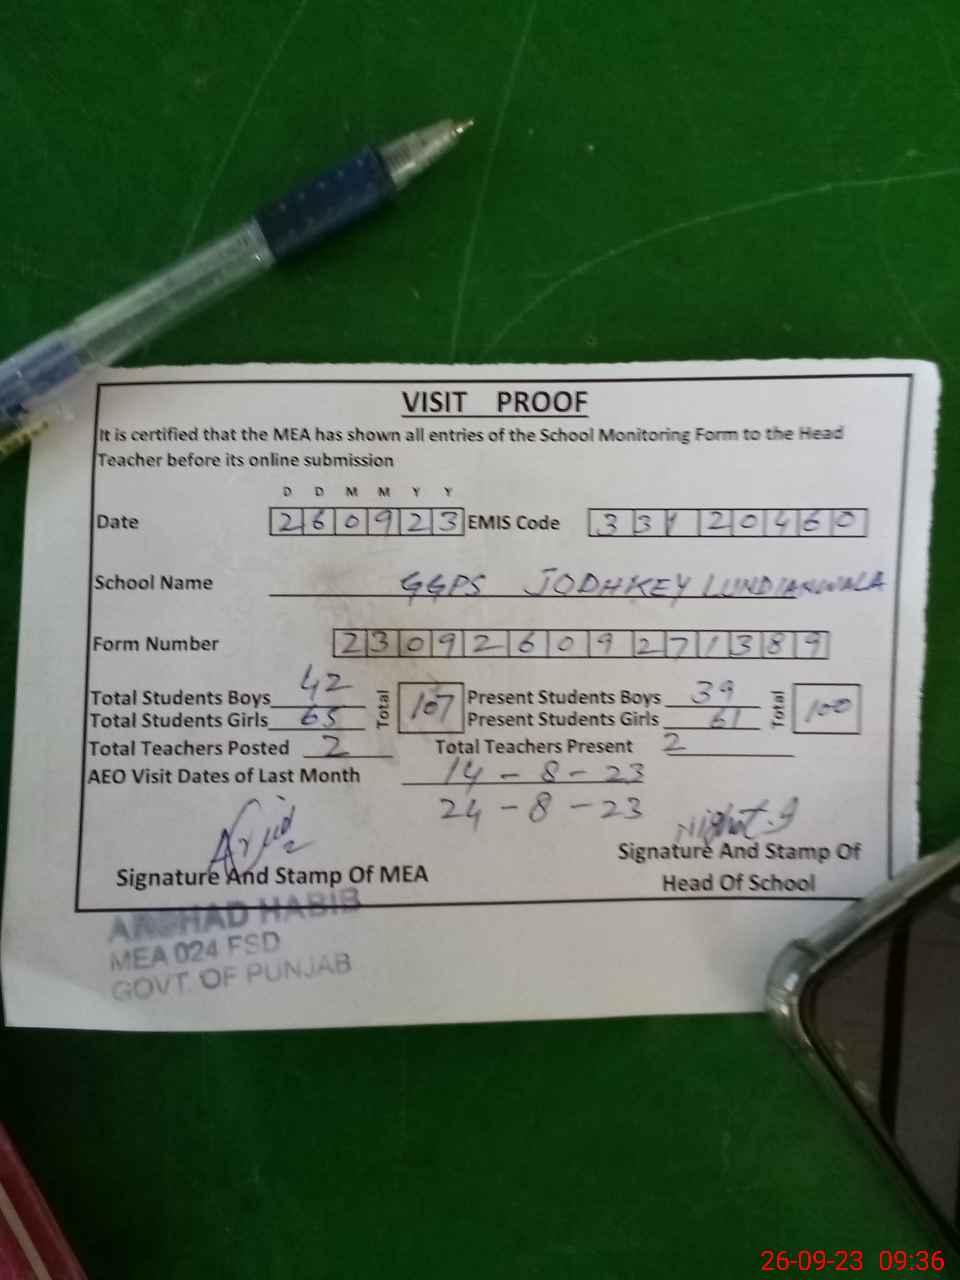 VISIT PROOF
It is certified that the MEA has shown all entries of the School Monitoring Form to the Head
Teacher before its online submission
D D M M Y Y
Date 260923 EMIS Code 33120460
School Name GGPS JODHKEY LUNDIANWALA
Form Number 23092609271389
Total Students Boys 42 Total 107 Present Students Boys 39 Total 100
Total Students Girls 65 Present Students Girls 61
Total Teachers Posted 2 Total Teachers Present 2
AEO Visit Dates of Last Month 14-8-23
24-8-23
Signature And Stamp Of MEA
Signature And Stamp Of
Head Of School
ARSHAD HABIB
MEA 024 FSD
GOVT. OF PUNJAB
26-09-23 09:36